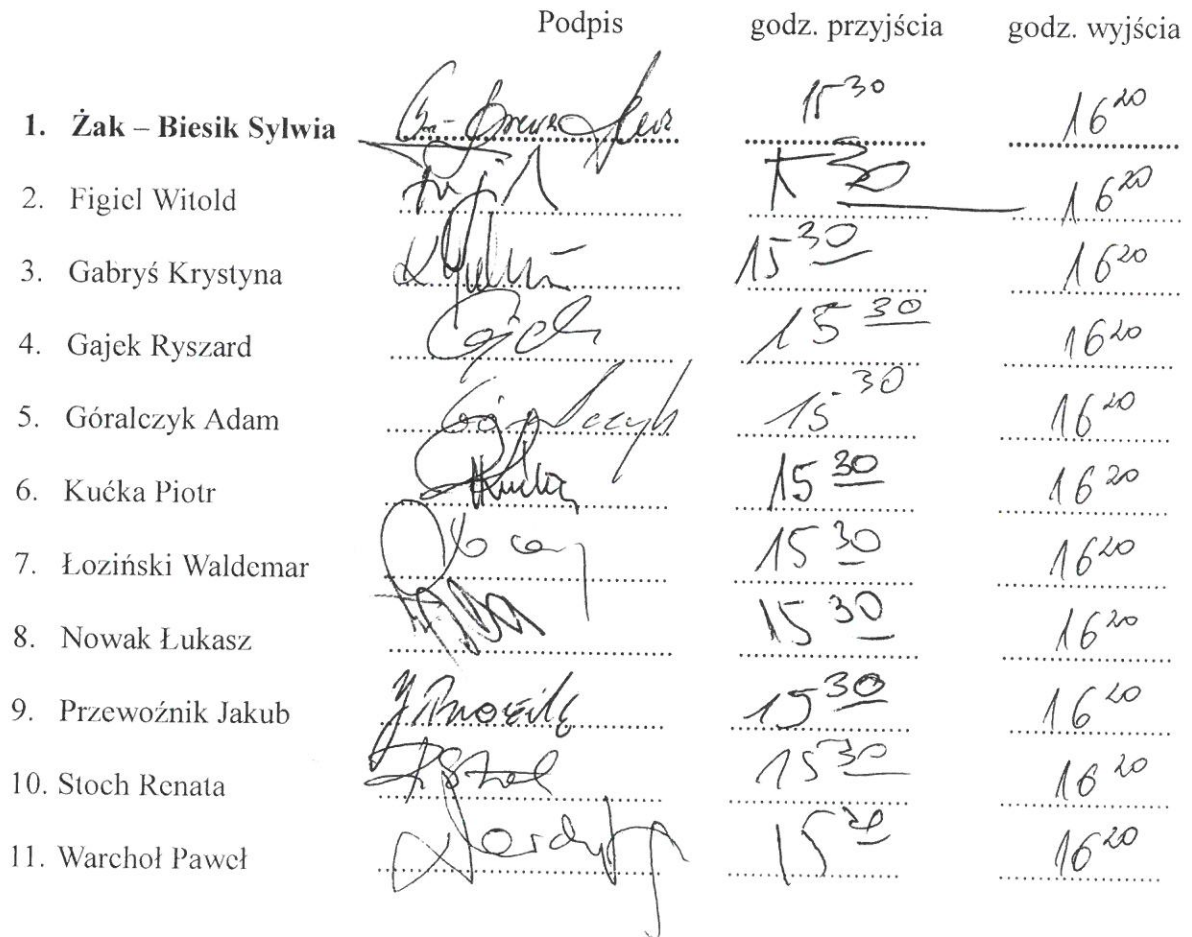 Podpis godz. przyjścia godz. wyjścia
1. Żak – Biesik Sylwia 15 30 16 20
2. Figiel Witold 15 30 16 20
3. Gabryś Krystyna 15 30 16 20
4. Gajek Ryszard 15 30 16 20
5. Góralczyk Adam Góralczyk 15 30 16 20
6. Kućka Piotr 15 30 16 20
7. Łoziński Waldemar 15 30 16 20
8. Nowak Łukasz 15 30 16 20
9. Przewoźnik Jakub 15 30 16 20
10. Stoch Renata 15 30 16 20
11. Warchoł Paweł 15 30 16 20